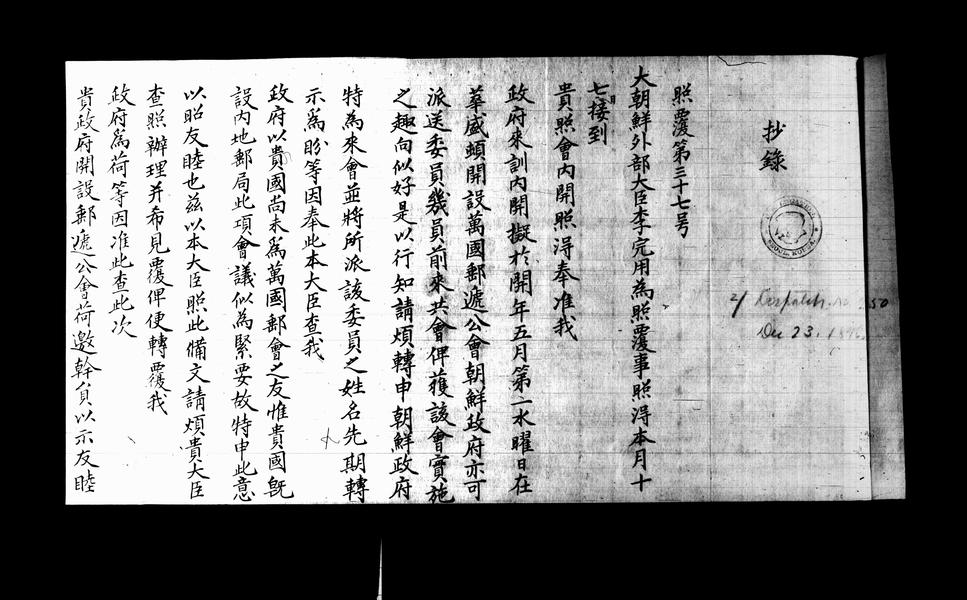 抄錄
2/ Despatch No 250
Dec 23. 1896
照覆第三十七号
大朝鮮外部大臣李完用為照覆事照淂本月十
七日接到
貴照會內開照淂奉准我
政府來訓內開擬於開年五月第一水曜日在
華盛頓開設萬國郵遞公會朝鮮政府亦可
派送委員幾員前來共會俾獲該會實施
之趣向似好是以行知請煩轉申朝鮮政府
特為來會並將所派該委員之姓名先期轉
示爲盼等因奉此本大臣查我
政府以貴國尚未爲萬國郵會之友惟貴國旣
設內地郵局此項會議似為緊要故特申此意
以昭友睦也茲以本大臣照此備文請煩貴大臣
查照辦理并希見覆俾便轉覆我
政府爲荷等因准此查此次
貴政府開設郵遞公會荷邀幹貟以示友睦